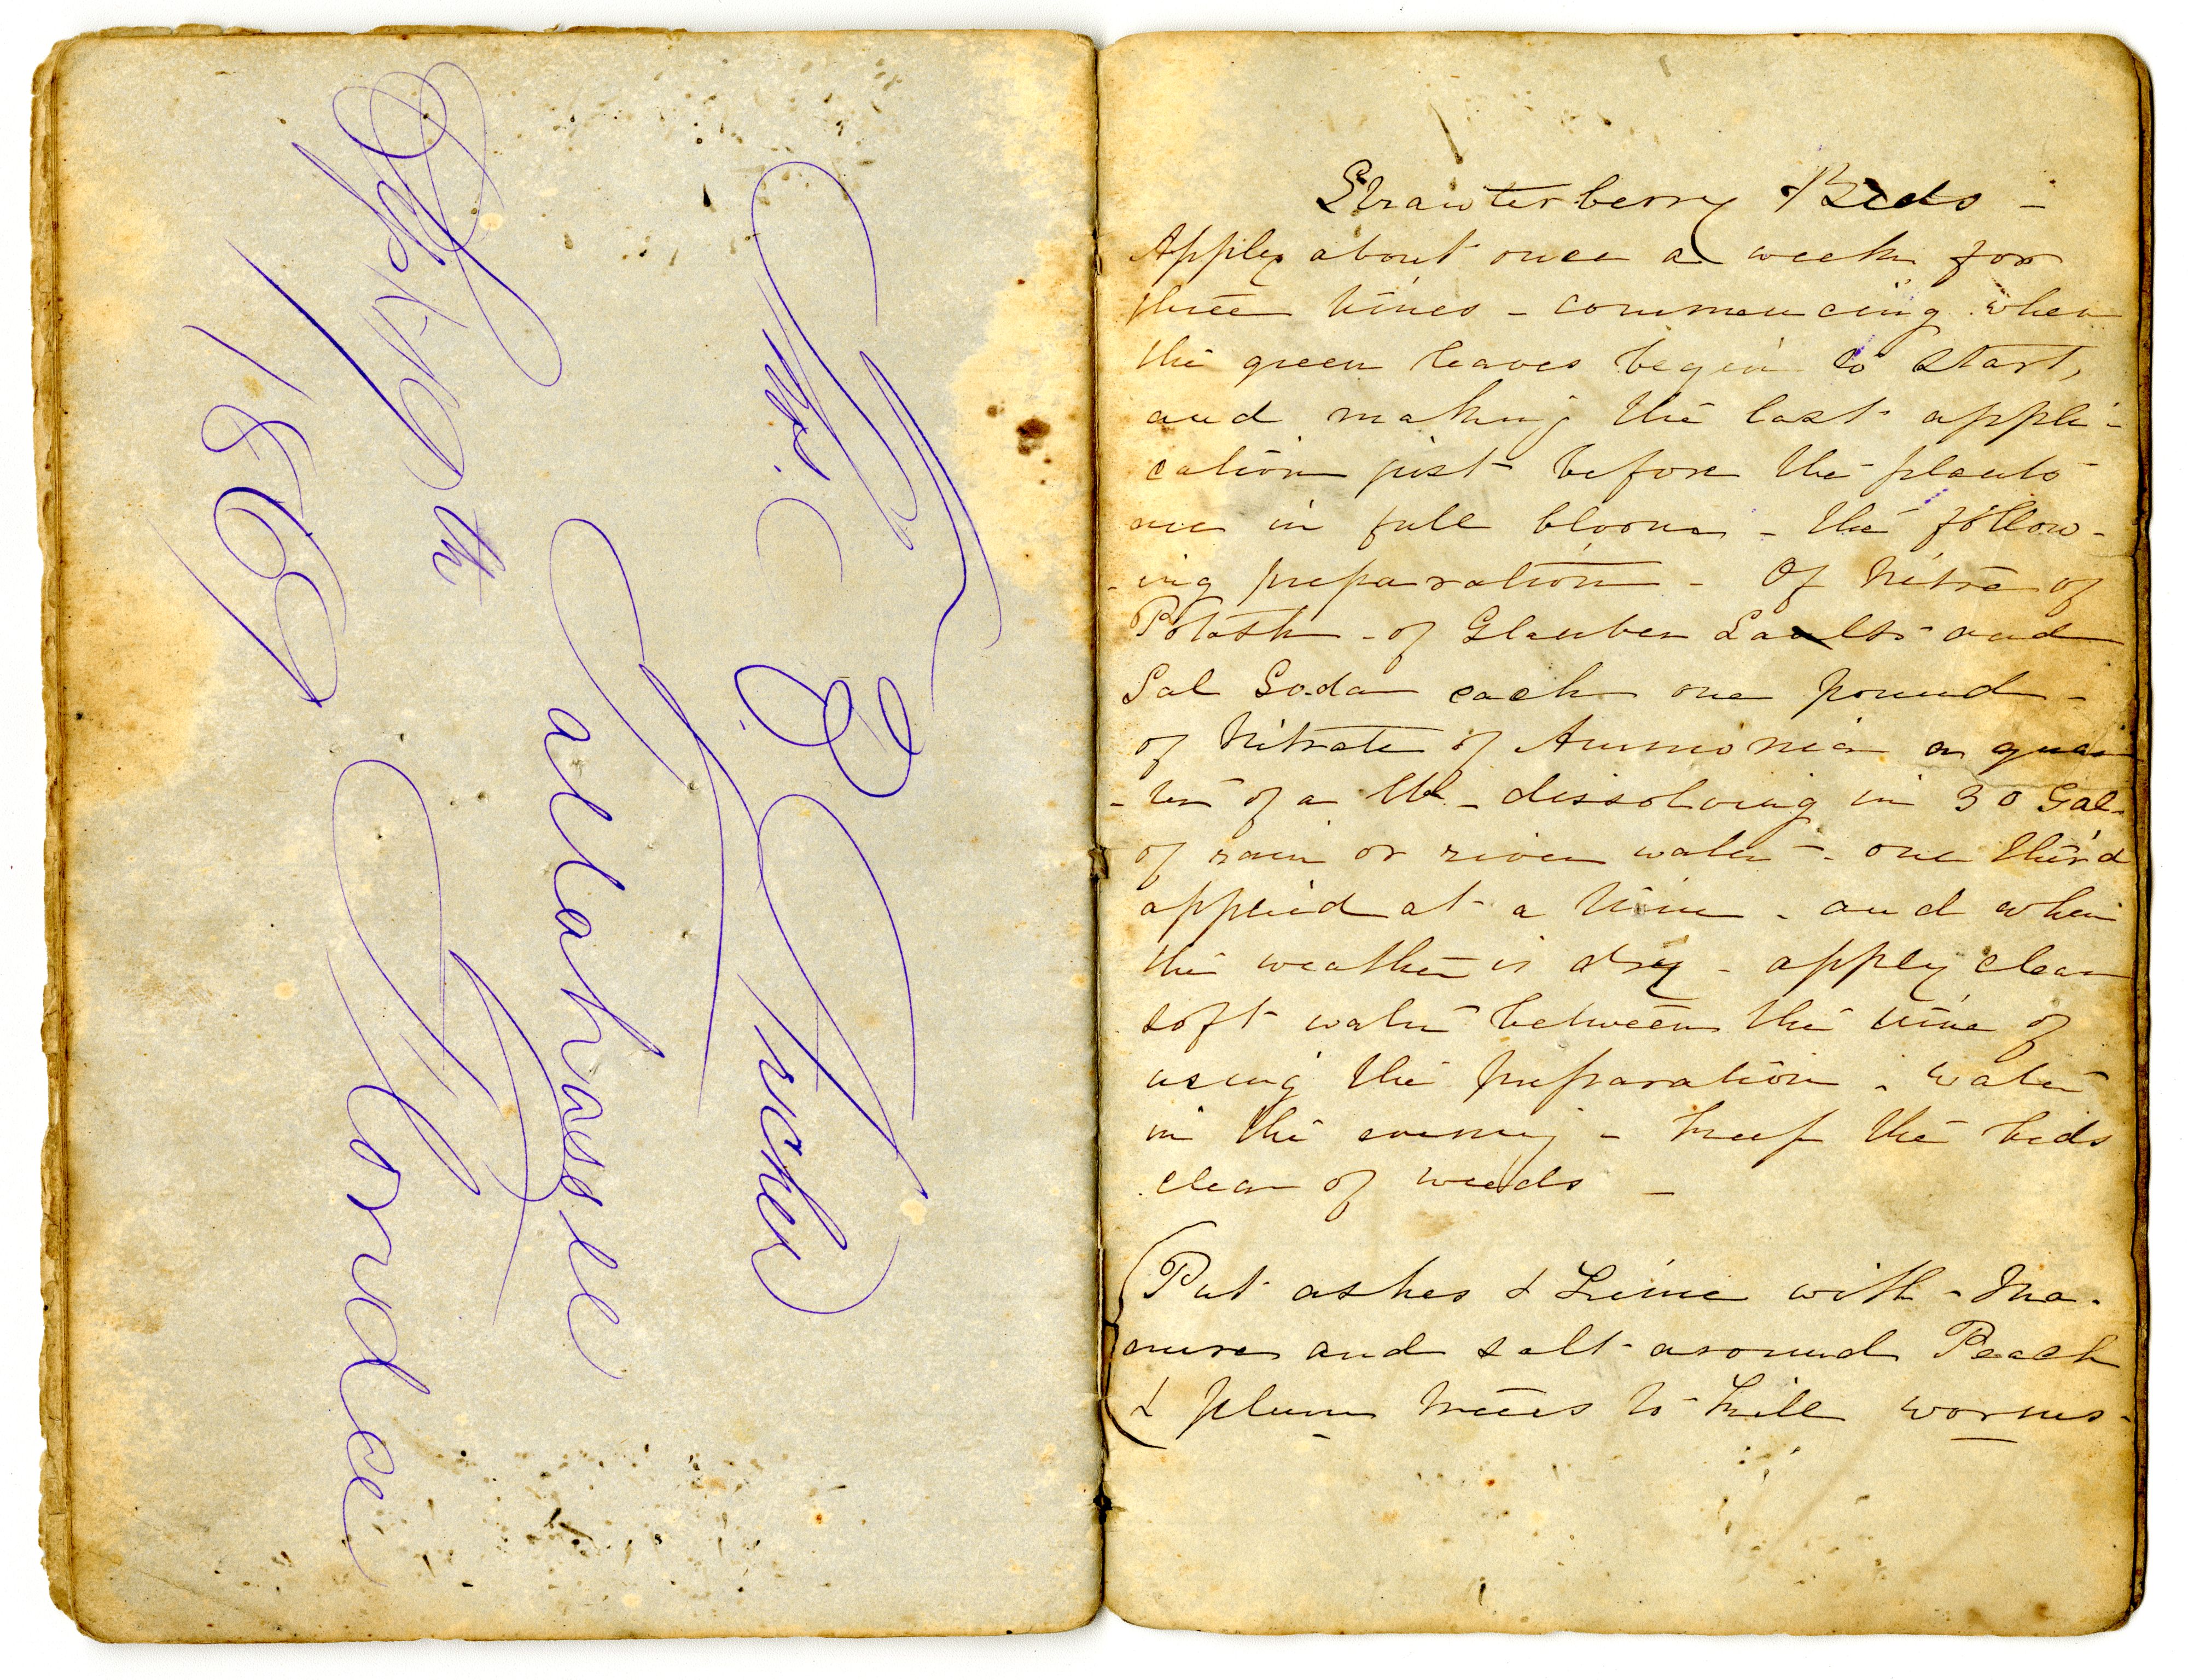 Mrs. C. B. Archer
Tallahassee
Florida
Sept. 19th
1869
Strawterberry Beds -
Apply about once a week for
three times - commencing when
the green leaves begin to start,
and making the last appli-
cation just before the plants
are in full bloom - the follow-
-ing preparation - Of Nitre of
Potash - of Glauber Saults and
Sal Soda each one pound -
of Nitrate of Ammonia a quar
-ter of a lb - dissolving in 30 Gal-
of rain or river water - one third
applied at a time - and when
the weather is dry - apply clean
soft water between the time of
using the preparation - water
in the evening - Keep the beds
clean of weeds -
(Put ashes & Lime with - Ma-
nure and salt around Peach
& plum trees to kill worms -